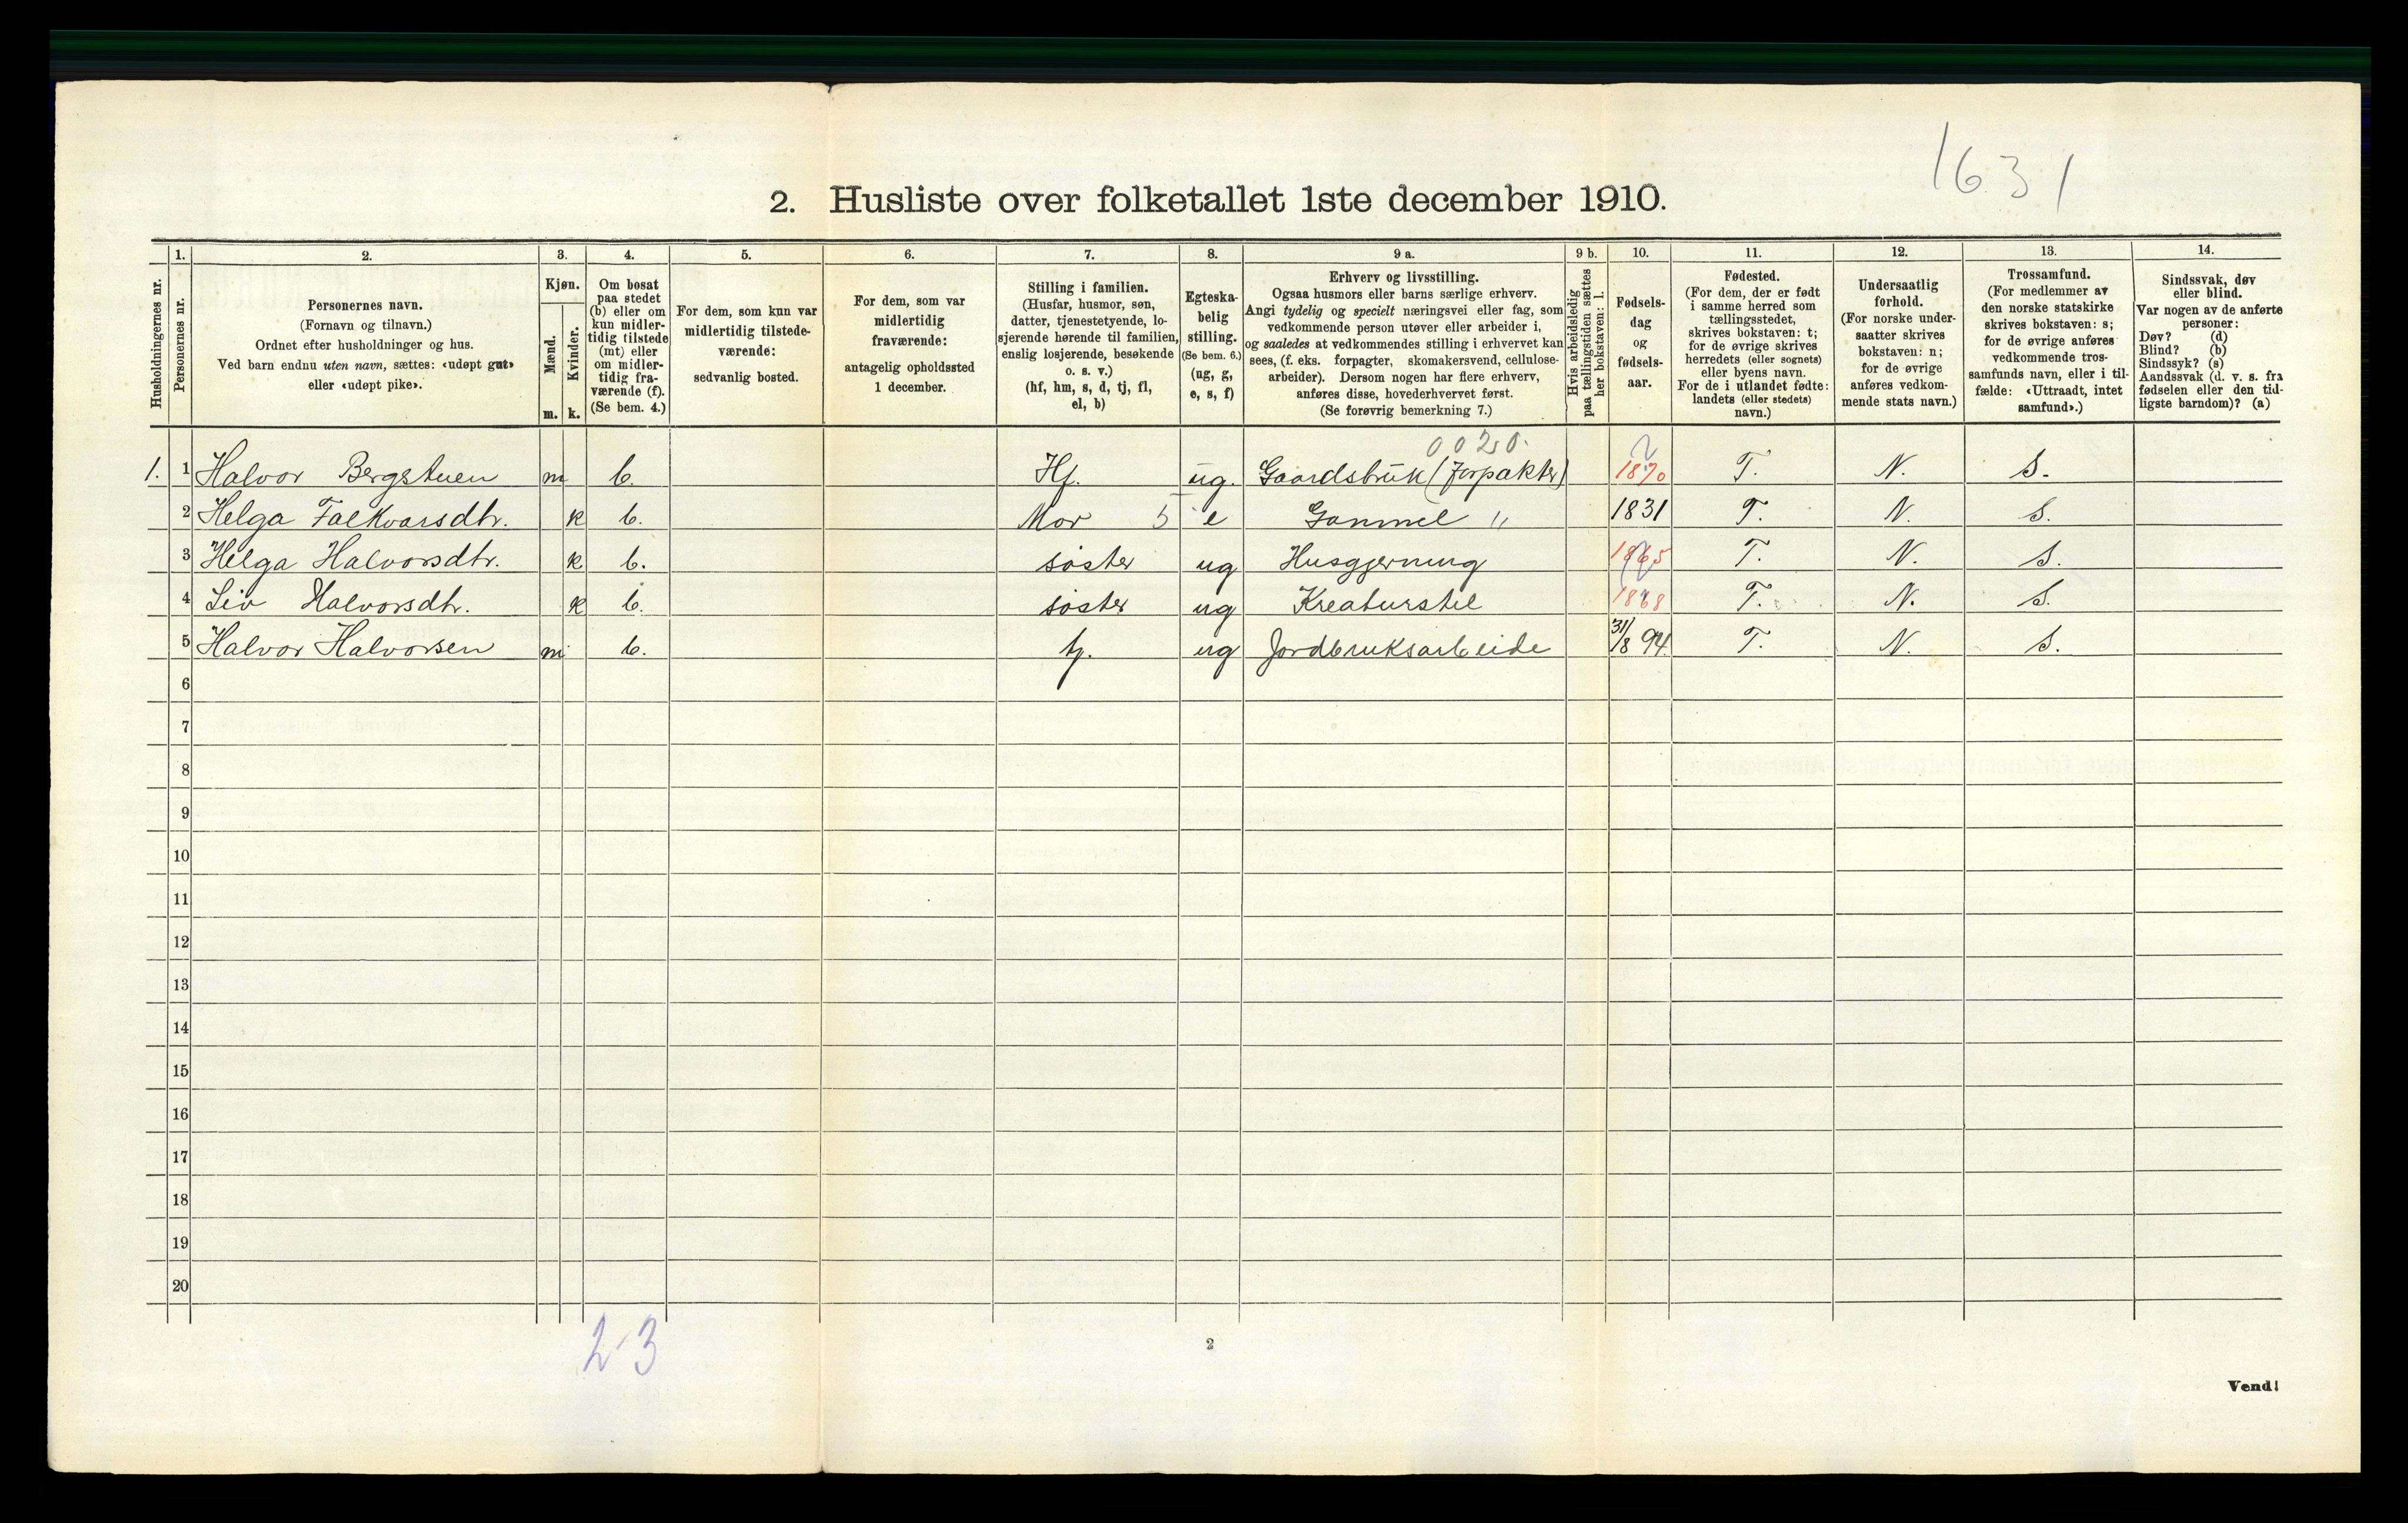 1631
2. Husliste over folketallet 1ste december 1910.
Husholdningernes nr.
1.
Personernes nr.
2.
Personernes navn.
(Fornavn og tilnavn.)
Ordnet efter husholdninger og hus.
Ved barn endnu uten navn, sættes: «udøpt gut»
eller «udøpt pike».
3.
Kjøn.
Mænd.
m.
Kvinder.
k.
4.
Om bosat
paa stedet
(b) eller om
kun midler-
tidig tilstede
(mt) eller
om midler-
tidig fra-
værende (f).
(Se bem. 4.)
5.
For dem, som kun var
midlertidig tilstede-
værende:
sedvanlig bosted.
6.
For dem, som var
midlertidig
fraværende:
antagelig opholdssted
1 december.
7.
Stilling i familien.
(Husfar, husmor, søn,
datter, tjenestetyende, lo-
sjerende hørende til familien,
enslig losjerende, besøkende
o. s. v.)
(hf, hm, s, d, tj, fl,
el, b)
8.
Egteska-
belig
stilling.
(Se bem. 6.)
(ug, g,
e, s, f)
9 a.
Erhverv og livsstilling.
Ogsaa husmors eller barns særlige erhverv.
Angi tydelig og specielt næringsvei eller fag, som
vedkommende person utøver eller arbeider i,
og saaledes at vedkommendes stilling i erhvervet kan
sees, (f. eks. forpagter, skomakersvend, cellulose-
arbeider). Dersom nogen har flere erhverv,
anføres disse, hovederhvervet først.
(Se forøvrig bemerkning 7.)
9 b.
Hvis arbeidsledig
paa tællingstiden sættes
her bokstaven: l.
10.
Fødsels-
dag
og
fødsels-
aar.
11.
Fødested.
(For dem, der er født
i samme herred som
tællingsstedet,
skrives bokstaven: t;
for de øvrige skrives
herredets (eller sognets)
eller byens navn.
For de i utlandet fødte:
landets (eller stedets)
navn.)
12.
Undersaatlig
forhold.
(For norske under-
saatter skrives
bokstaven: n;
for de øvrige
anføres vedkom-
mende stats navn.)
13.
Trossamfund.
(For medlemmer av
den norske statskirke
skrives bokstaven: s;
for de øvrige anføres
vedkommende tros-
samfunds navn, eller i til-
fælde: «Uttraadt, intet
samfund».)
14.
Sindssvak, døv
eller blind.
Var nogen av de anførte
personer:
Døv? (d)
Blind? (b)
Sindssyk? (s)
Aandssvak (d. v. s. fra
fødselen eller den tid-
ligste barndom)? (a)
1. 1 Halvor Bergstuen m b. Hf. ug. Gaardsbruk (Forpakter) 1870 T. N. S.
2 Helga Falkvarsdtr. k b. Mor 5 e Gammel " 1831 T. N. S.
3 Helga Halvorsdtr. k b. søster ug Husgjerning 1865 T. N. S.
4 Liv Halvorsdtr. k b. søster ug Kreaturstel 1868 T. N. S.
5 Halvor Halvorsen m b. tj. ug Jordbruksarbeide 31/8 94. T. N. S.
6
7
8
9
10
11
12
13
14
15
16
17
18
19
20
2-3
2
Vend!